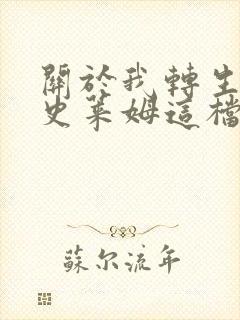 關於我轉生
史萊姆這檔
蘇尔流年